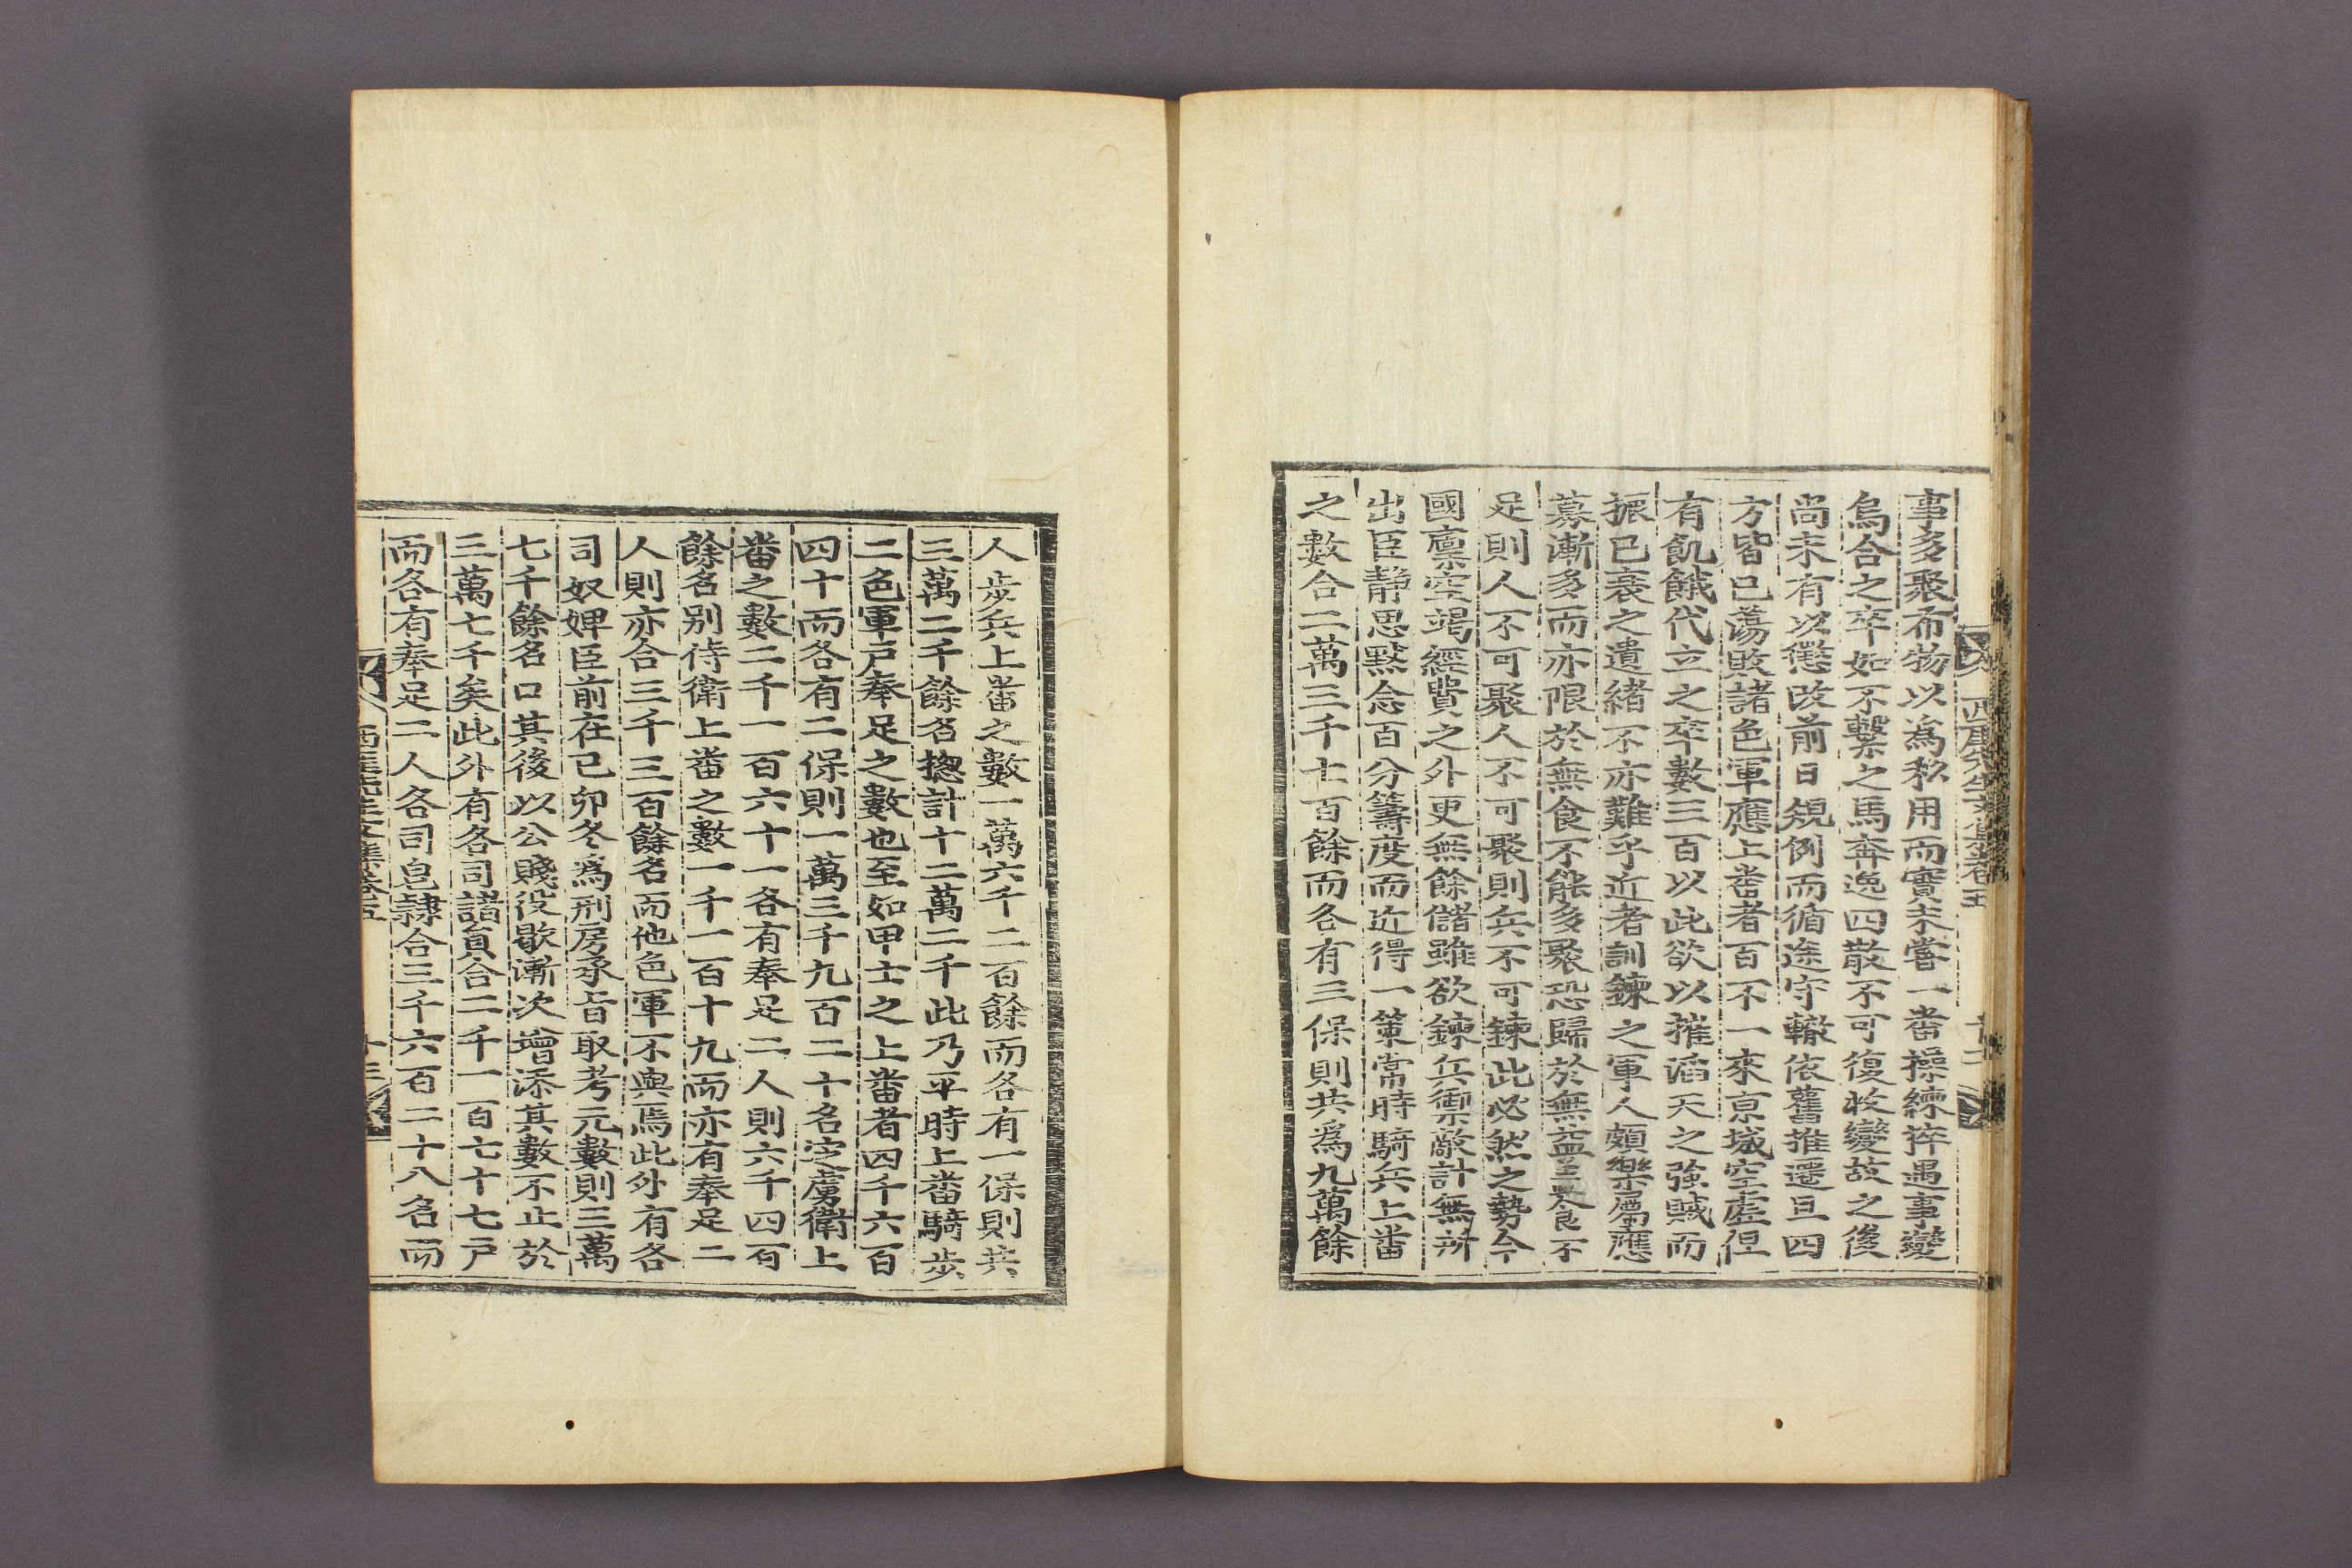 西厓先生文集卷五
十二
事多聚布物以爲私用而實未嘗一番操練猝遇事變
烏合之卒如不繫之馬奔逸四散不可復收變故之後
尚未有以懲改前日規例而循途守轍依舊推遷且四
方皆已蕩敗諸色軍應上番者百不一來京城空虛但
有飢餓代立之卒數三百以此欲以摧滔天之強賊而
振已衰之遺緖不亦難乎近者訓鍊之軍人頗樂屬應
募漸多而亦限於無食不能多聚恐歸於無益盖食不
足則人不可聚人不可聚則兵不可鍊此必然之勢今
國廩空竭經費之外更無餘儲雖欲鍊兵禦敵計無所
出臣靜思默念百分籌度而近得一策常時騎兵上番
之數合二萬三千七百餘而各有三保則共爲九萬餘
人步兵上番之數一萬六千二百餘而各有一保則共
三萬二千餘名摠計十二萬二千此乃平時上番騎步
二色軍戶奉足之數也至如甲士之上番者四千六百
四十而各有二保則一萬三千九百二十名定虜衛上
番之數二千一百六十一各有奉足二人則六千四百
餘名別侍衛上番之數一千一百十九而亦有奉足二
人則亦合三千三百餘名而他色軍不與焉此外有各
司奴婢臣前在己卯冬爲刑房承旨取考元數則三萬
七千餘名口其後以公賤役歇漸次增添其數不止於
三萬七千矣此外有各司諸員合二千一百七十七戶
而各有奉足二人各司皂隷合三千六百二十八名而
西厓先生文集卷五
十三